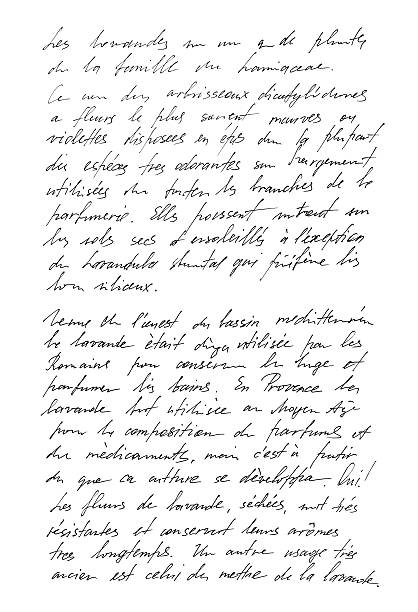 Les lavandes un de plantes
de la famille du Lamiaceae.
Ce arbrisseaux dicotylédones
a fleurs le plus souvent mauves ou
violettes disposées en épis don la plupart
des espèces tres odorantes son largement
utilisées les branches de la
parfumerie. Elles poussent surtout sur
les sols secs et ensoleillés à l'exception
du Lavandula qui préfère les
siliceux.
l'ouest du bassin
la lavande était utilisée par les
Romains pour conserver le linge et
parfumer les bains. En Provence la
lavande fut utilisée au Moyen Age
pour la composition de parfums et
du médicaments, mais c'est à partir
du que sa culture se développa.
Les fleurs de lavande, séchées, sont très
résistantes et conservent leurs arômes
tres longtemps. Un autre usage très
ancien est celui de mettre de la lavande